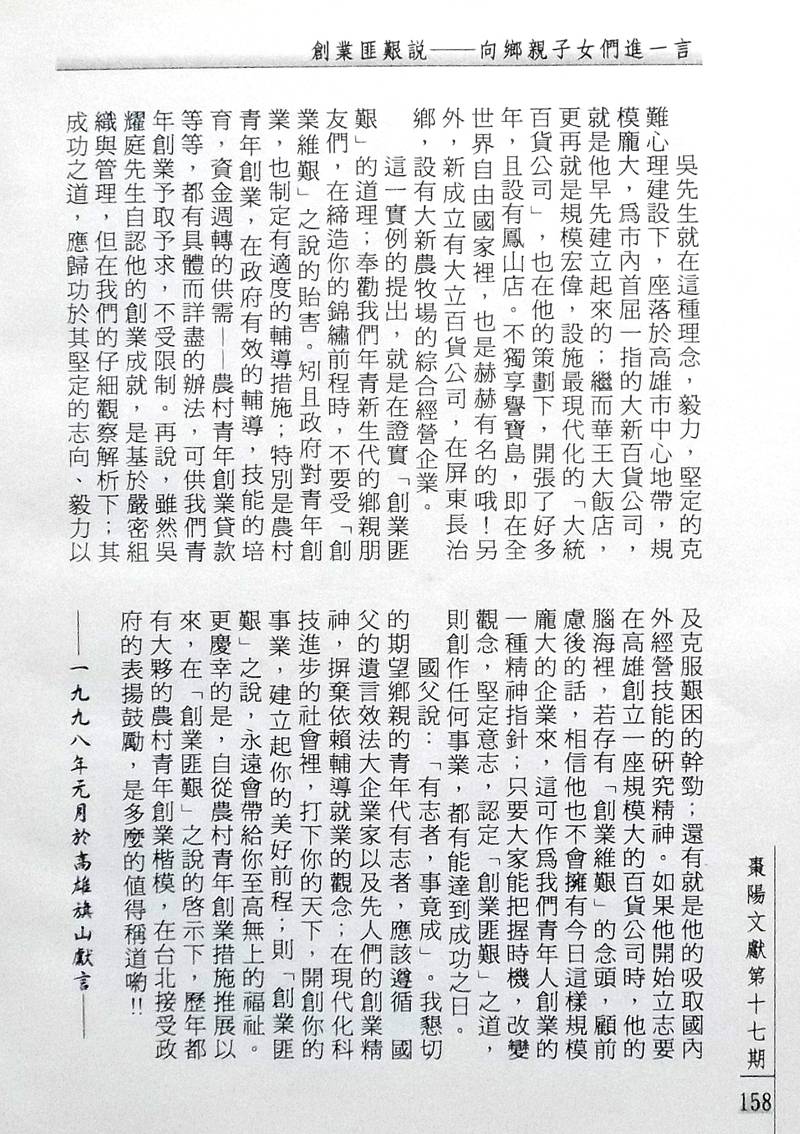 創業匪艱說——向鄉親子女們進一言
吳先生就在這種理念，毅力，堅定的克
難心理建設下，座落於高雄市中心地帶，規
模龐大，爲市內首屈一指的大新百貨公司，
就是他早先建立起來的；繼而華王大飯店，
更再就是規模宏偉，設施最現代化的「大統
百貨公司」，也在他的策劃下，開張了好多
年，且設有鳳山店。不獨享譽寶島，即在全
世界自由國家裡，也是赫赫有名的哦！另
外，新成立有大立百貨公司，在屏東長治
鄉，設有大新農牧場的綜合經營企業。
這一實例的提出，就是在證實「創業匪
艱」的道理；奉勸我們年青新生代的鄉親朋
友們，在締造你的錦繡前程時，不要受「創
業維艱」之說的貽害。矧且政府對青年創
業，也制定有適度的輔導措施；特別是農村
青年創業，在政府有效的輔導，技能的培
育，資金週轉的供需——農村青年創業貸款
等等，都有具體而詳盡的辦法，可供我們青
年創業予取予求，不受限制。再說，雖然吳
耀庭先生自認他的創業成就，是基於嚴密組
織與管理，但在我們的仔細觀察解析下；其
成功之道，應歸功於其堅定的志向、毅力以
及克服艱困的幹勁；還有就是他的吸取國內
外經營技能的研究精神。如果他開始立志要
在高雄創立一座規模大的百貨公司時，他的
腦海裡，若存有「創業維艱」的念頭，顧前
慮後的話，相信他也不會擁有今日這樣規模
龐大的企業來，這可作爲我們青年人創業的
一種精神指針；只要大家能把握時機，改變
觀念，堅定意志，認定「創業匪艱」之道，
則創作任何事業，都有能達到成功之日。
國父說：「有志者，事竟成」。我懇切
的期望鄉親的青年代有志者，應該遵循　國
父的遺言效法大企業家以及先人們的創業精
神，摒棄依賴輔導就業的觀念；在現代化科
技進步的社會裡，打下你的天下，開創你的
事業，建立起你的美好前程；則「創業匪
艱」之說，永遠會帶給你至高無上的福祉。
更慶幸的是，自從農村青年創業措施推展以
來，在「創業匪艱」之說的啓示下，歷年都
有大夥的農村青年創業楷模，在台北接受政
府的表揚鼓勵，是多麼的值得稱道喲!!
——一九九八年元月於高雄旗山獻言——
棗陽文獻第十七期
158